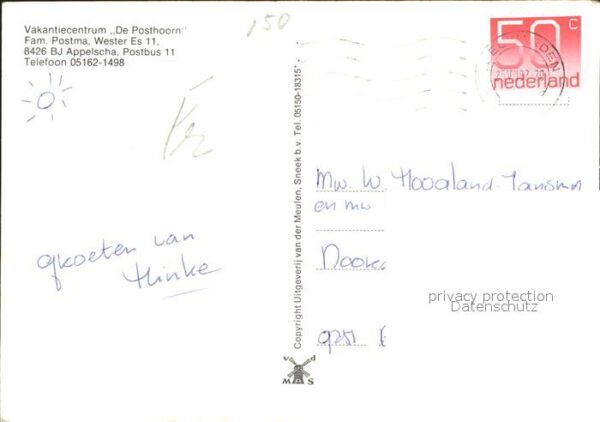 Vakantiecentrum „De Posthoorn"
Fam. Postma, Wester Es 11,
8426 BJ Appelscha, Postbus 11
Telefoon 05162-1498
150
50 c
nederland
groeten van
Hinke
Copyright Uitgeverij van der Meulen, Sneek b.v. Tel. 05150-18315*
v d
M S
Mw. W. Hoogland-Jansma
en mw
9251
privacy protection
Datenschutz